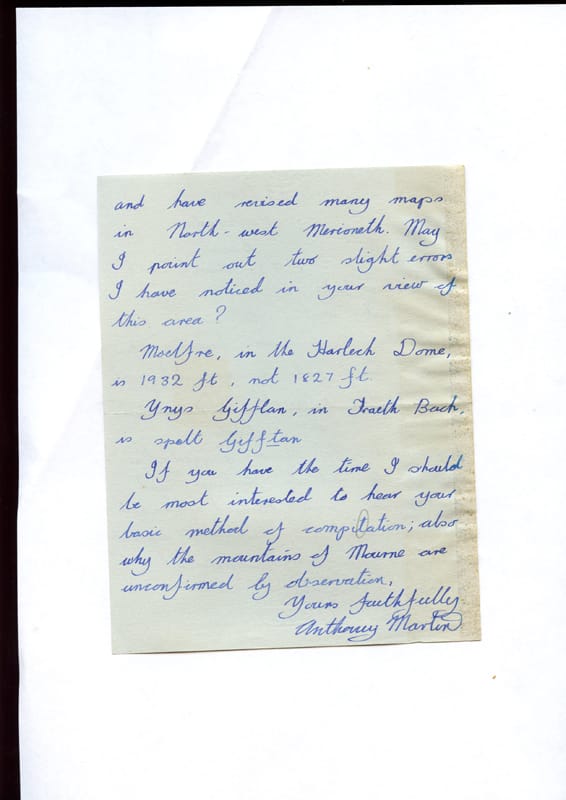 and have revised many maps
in North-west Merioneth. May
I point out two slight errors
I have noticed in your view of
this area?
Moelfre, in the Harlech Dome,
is 1932 ft, not 1827 ft.
Ynys Gifflan, in Traeth Bach,
is spelt Gifftan
If you have the time I should
be most interested to hear your
basic method of compilation; also
why the mountains of Mourne are
unconfirmed by observation,
Yours faithfully
Anthony Martin